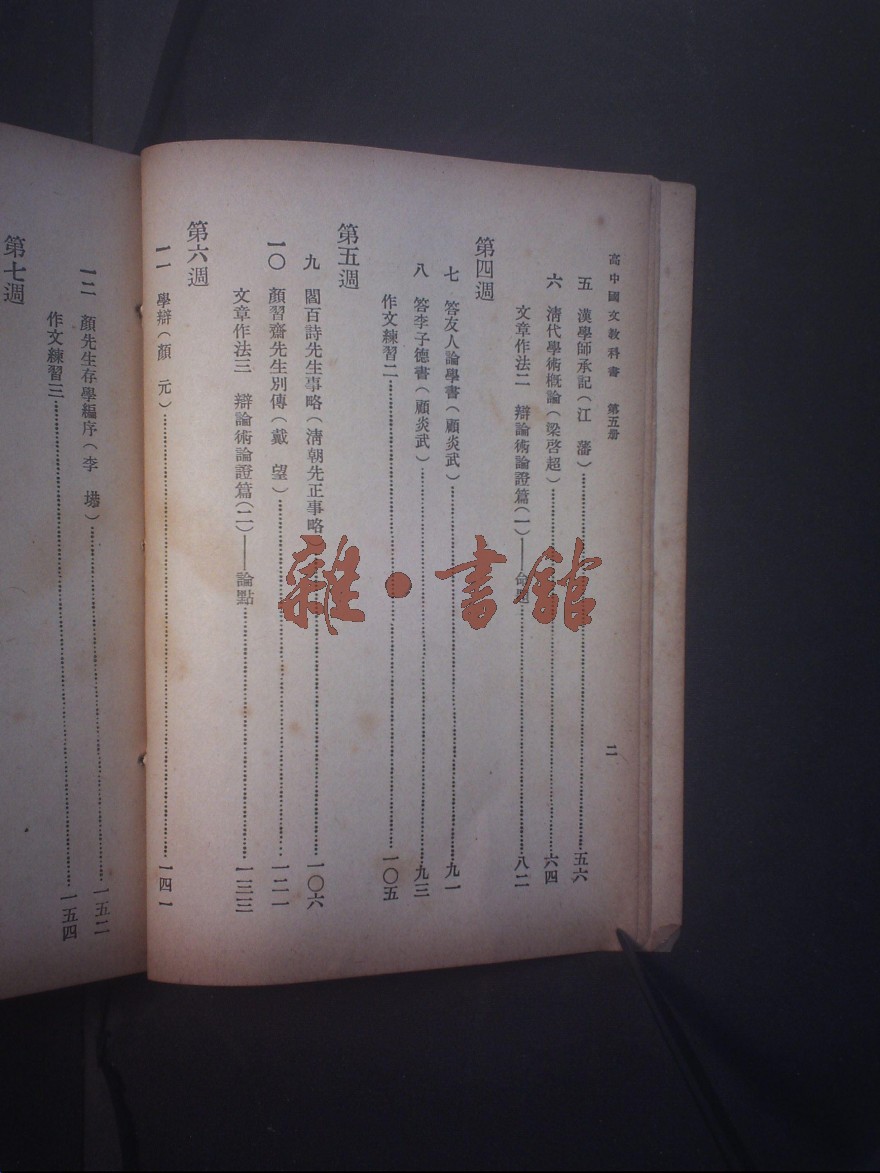 高中國文教科書 第五册
二
五 漢學師承記（江 藩）……五六
六 清代學術概論（梁啓超）……六四
文章作法二 辯論術論證篇（一）——命題……八二
第四週
七 答友人論學書（顧炎武）……九一
八 答李子德書（顧炎武）……九三
作文練習二……一〇五
第五週
九 閻百詩先生事略（清朝先正事略）……一〇六
一〇 顏習齋先生別傳（戴 望）……一二一
文章作法三 辯論術論證篇（二）——論點……一三三
第六週
一一 學辯（顏 元）……一四一
一二 顏先生存學編序（李 塨）……一五二
作文練習三……一五四
第七週
雜·書館